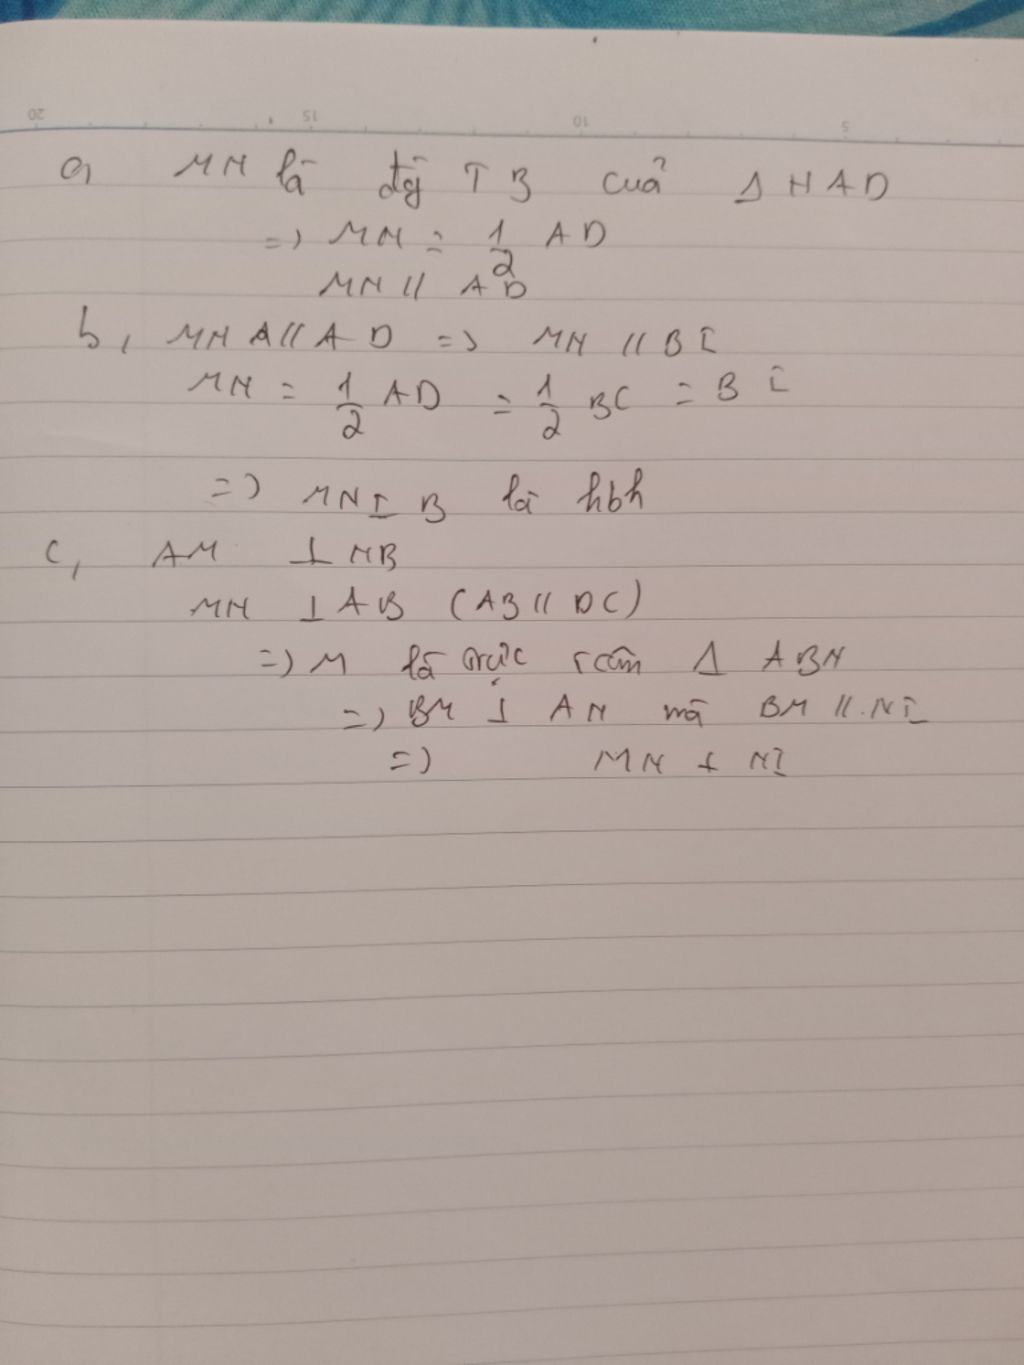 20 15 10 5
a, MN là đg TB cuả Δ HAD
=> MN = 1/2 AD
MN // AD
b, MN // AD => MN // BI
MN = 1/2 AD = 1/2 BC = BI
=> MNIB là hbh
c, AM ⊥ NB
MN ⊥ AB (AB // DC)
=> M là trực tâm Δ ABN
=> BM ⊥ AN mà BM // NI
=> MN ⊥ NI